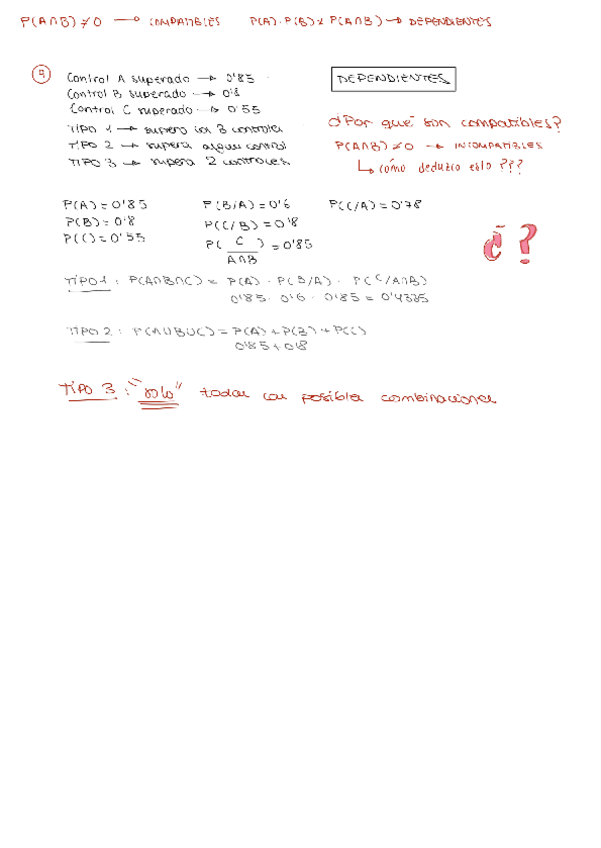 P(A∩B) ≠ 0 → COMPATIBLES P(A)·P(B) ≠ P(A∩B) → DEPENDIENTES
9 Control A superado → 0'85 DEPENDIENTES
Control B superado → 0'8
Control C superado → 0'55
¿Por qué son compatibles?
TIPO 1 → supera los 3 controles
TIPO 2 → supera algún control
P(A∩B) ≠ 0 → INCOMPATIBLES
TIPO 3 → supera 2 controles
↳ cómo deduzco esto ???
P(A) = 0'85 P(B/A) = 0'6 P(C/A) = 0'78
P(B) = 0'8 P(C/B) = 0'8
P(C) = 0'55 P(C/A∩B) = 0'85
¿?
TIPO 1 : P(A∩B∩C) = P(A) · P(B/A) · P(C/A∩B)
0'85 · 0'6 · 0'85 = 0'4335
TIPO 2 : P(A∪B∪C) = P(A) + P(B) + P(C)
0'85 + 0'8
TIPO 3 : "solo" todas las posibles combinaciones